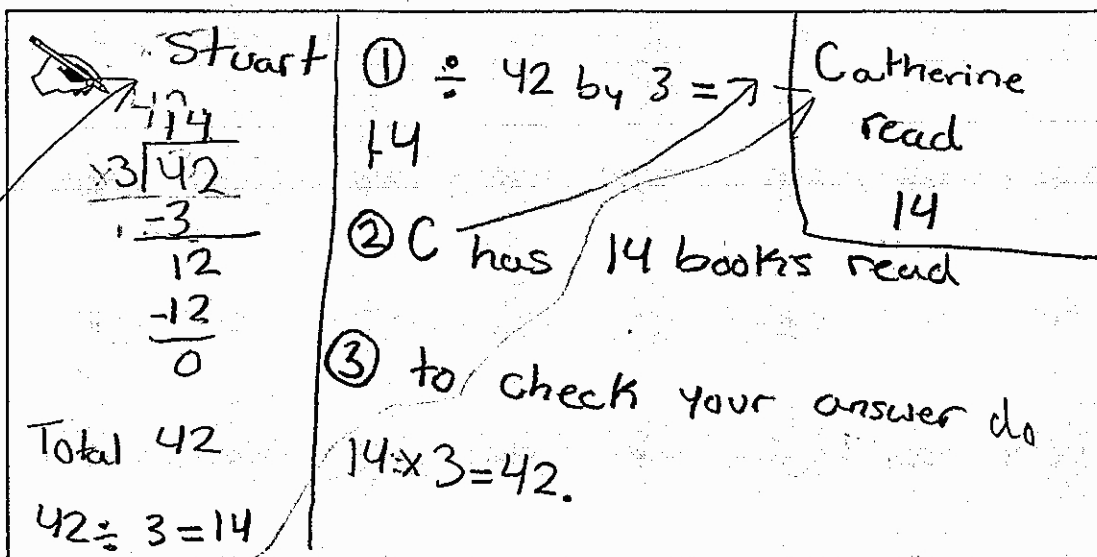 Stuart
14
x3√42
-3
12
-12
0
Total 42
42 ÷ 3 = 14
① ÷ 42 by 3 =
14
② C has 14 books read
③ to check your answer do
14 x 3 = 42.
Catherine
read
14